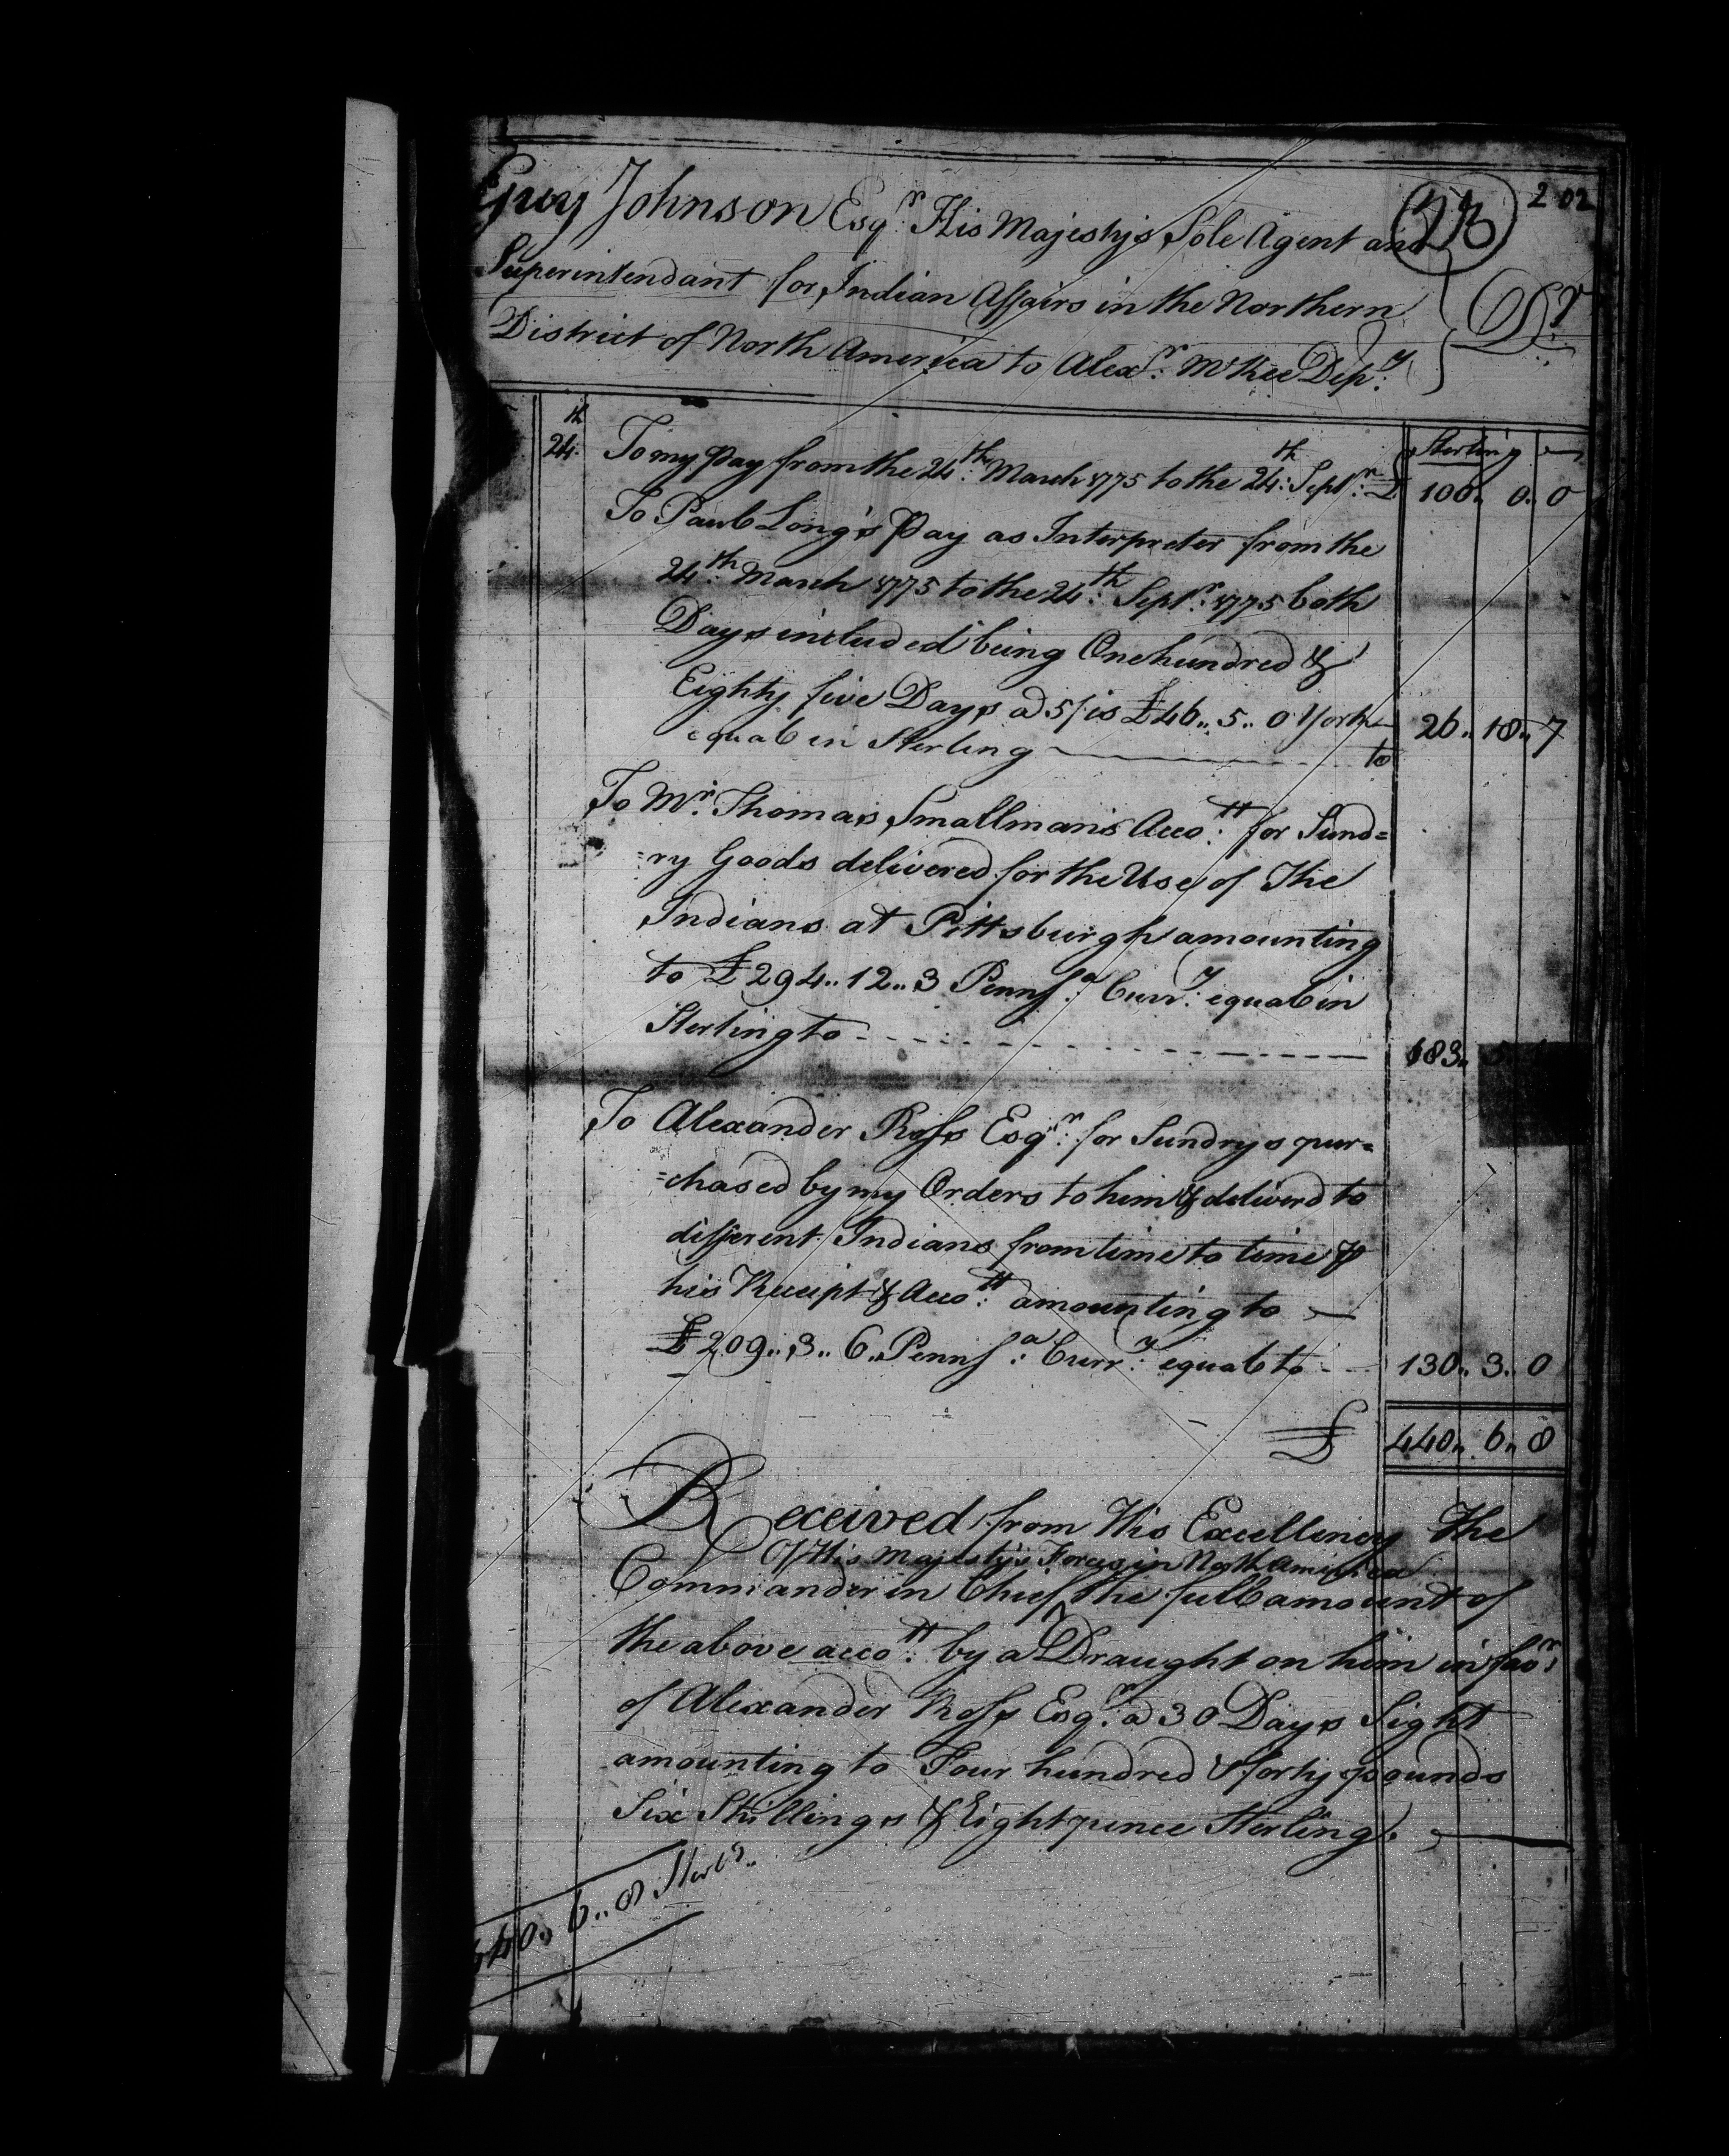 202
Guy Johnson Esqr. His Majestys Sole Agent and
Superintendant for Indian Affairs in the Northern
District of North America to Alexr. McKee Depy.
Dr.
Sterling
24th. To my Pay from the 24th. March 1775 to the 24th: Septr. £ 100.. 0.. 0
To Paul Long's Pay as Interpreter from the
24th. March 1775 to the 24th. Septr. 1775 both
Days included being One hundred &
Eighty five Days @ 5/ is £46.. 5.. 0 York
equal in Sterling to 26.. 18.. 7
To Mr. Thomas Smallman's Accott. for Sund=
=ry Goods delivered for the Use of The
Indians at Pittsburgh amounting
to £294.. 12.. 3 Pennsa. Curry. equal in
Sterling to 183.. 5..
To Alexander Ross Esqr. for Sundrys pur=
=chased by my Orders to him & deliverd to
different Indians from time to time
his Receipt & Accott. amounting to
£209.. 3.. 6.. Pennsa. Curry. equal to 130.. 3.. 0
£ 440.. 6.. 8
Received from His Excellency The
Of His Majesty's Forces in North America
Commander in Chief ^ the full amount of
the above accott. by a Draught on him in favr.
of Alexander Ross Esqr. @ 30 Days Sight
amounting to Four hundred & forty pounds
Six Shillings & Eight pence Sterling.
440.. 6.. 8 Sterlg..